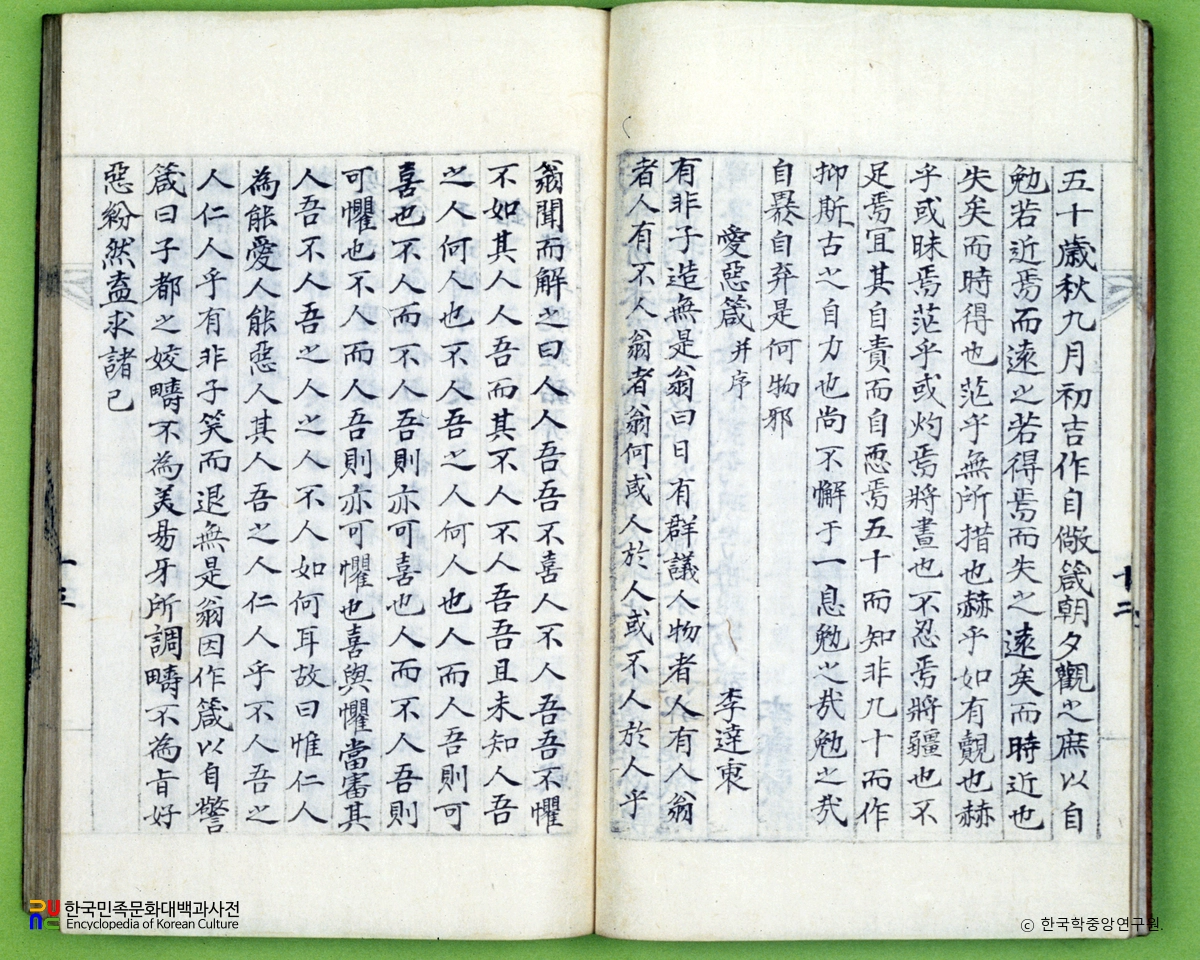 五十歲秋九月初吉作自儆箴朝夕觀之庶以自
勉若近焉而遠之若得焉而失之遠矣而時近也
失矣而時得也茫乎無所措也赫乎如有覿也赫
乎或昧焉茫乎或灼焉將晝也不忍焉將疆也不
足焉冝其自責而自惡焉五十而知非凡十而作
抑斯古之自力也尚不懈于一息勉之㢤勉之㢤
自㬥自弃是何物邪
愛惡箴并序
李達衷
有非子造無是翁曰日有群議人物者人有人翁
者人有不人翁者翁何或人於人或不人於人乎
翁聞而解之曰人人吾吾不喜人不人吾吾不懼
不如其人人吾而其不人不人吾吾且未知人吾
之人何人也不人吾之人何人也人而人吾則可
喜也不人而不人吾則亦可喜也人而不人吾則
可懼也不人而人吾則亦可懼也喜與懼當審其
人吾不人吾之人之人不人如何耳故曰惟仁人
為能愛人能惡人其人吾之人仁人乎不人吾之
人仁人乎有非子笑而退無是翁因作箴以自警
箴曰子都之姣疇不為美易牙所調疇不為旨好
惡紛然盍求諸己
十二
十三
한국민족문화대백과사전
Encyclopedia of Korean Culture
ⓒ 한국학중앙연구원.